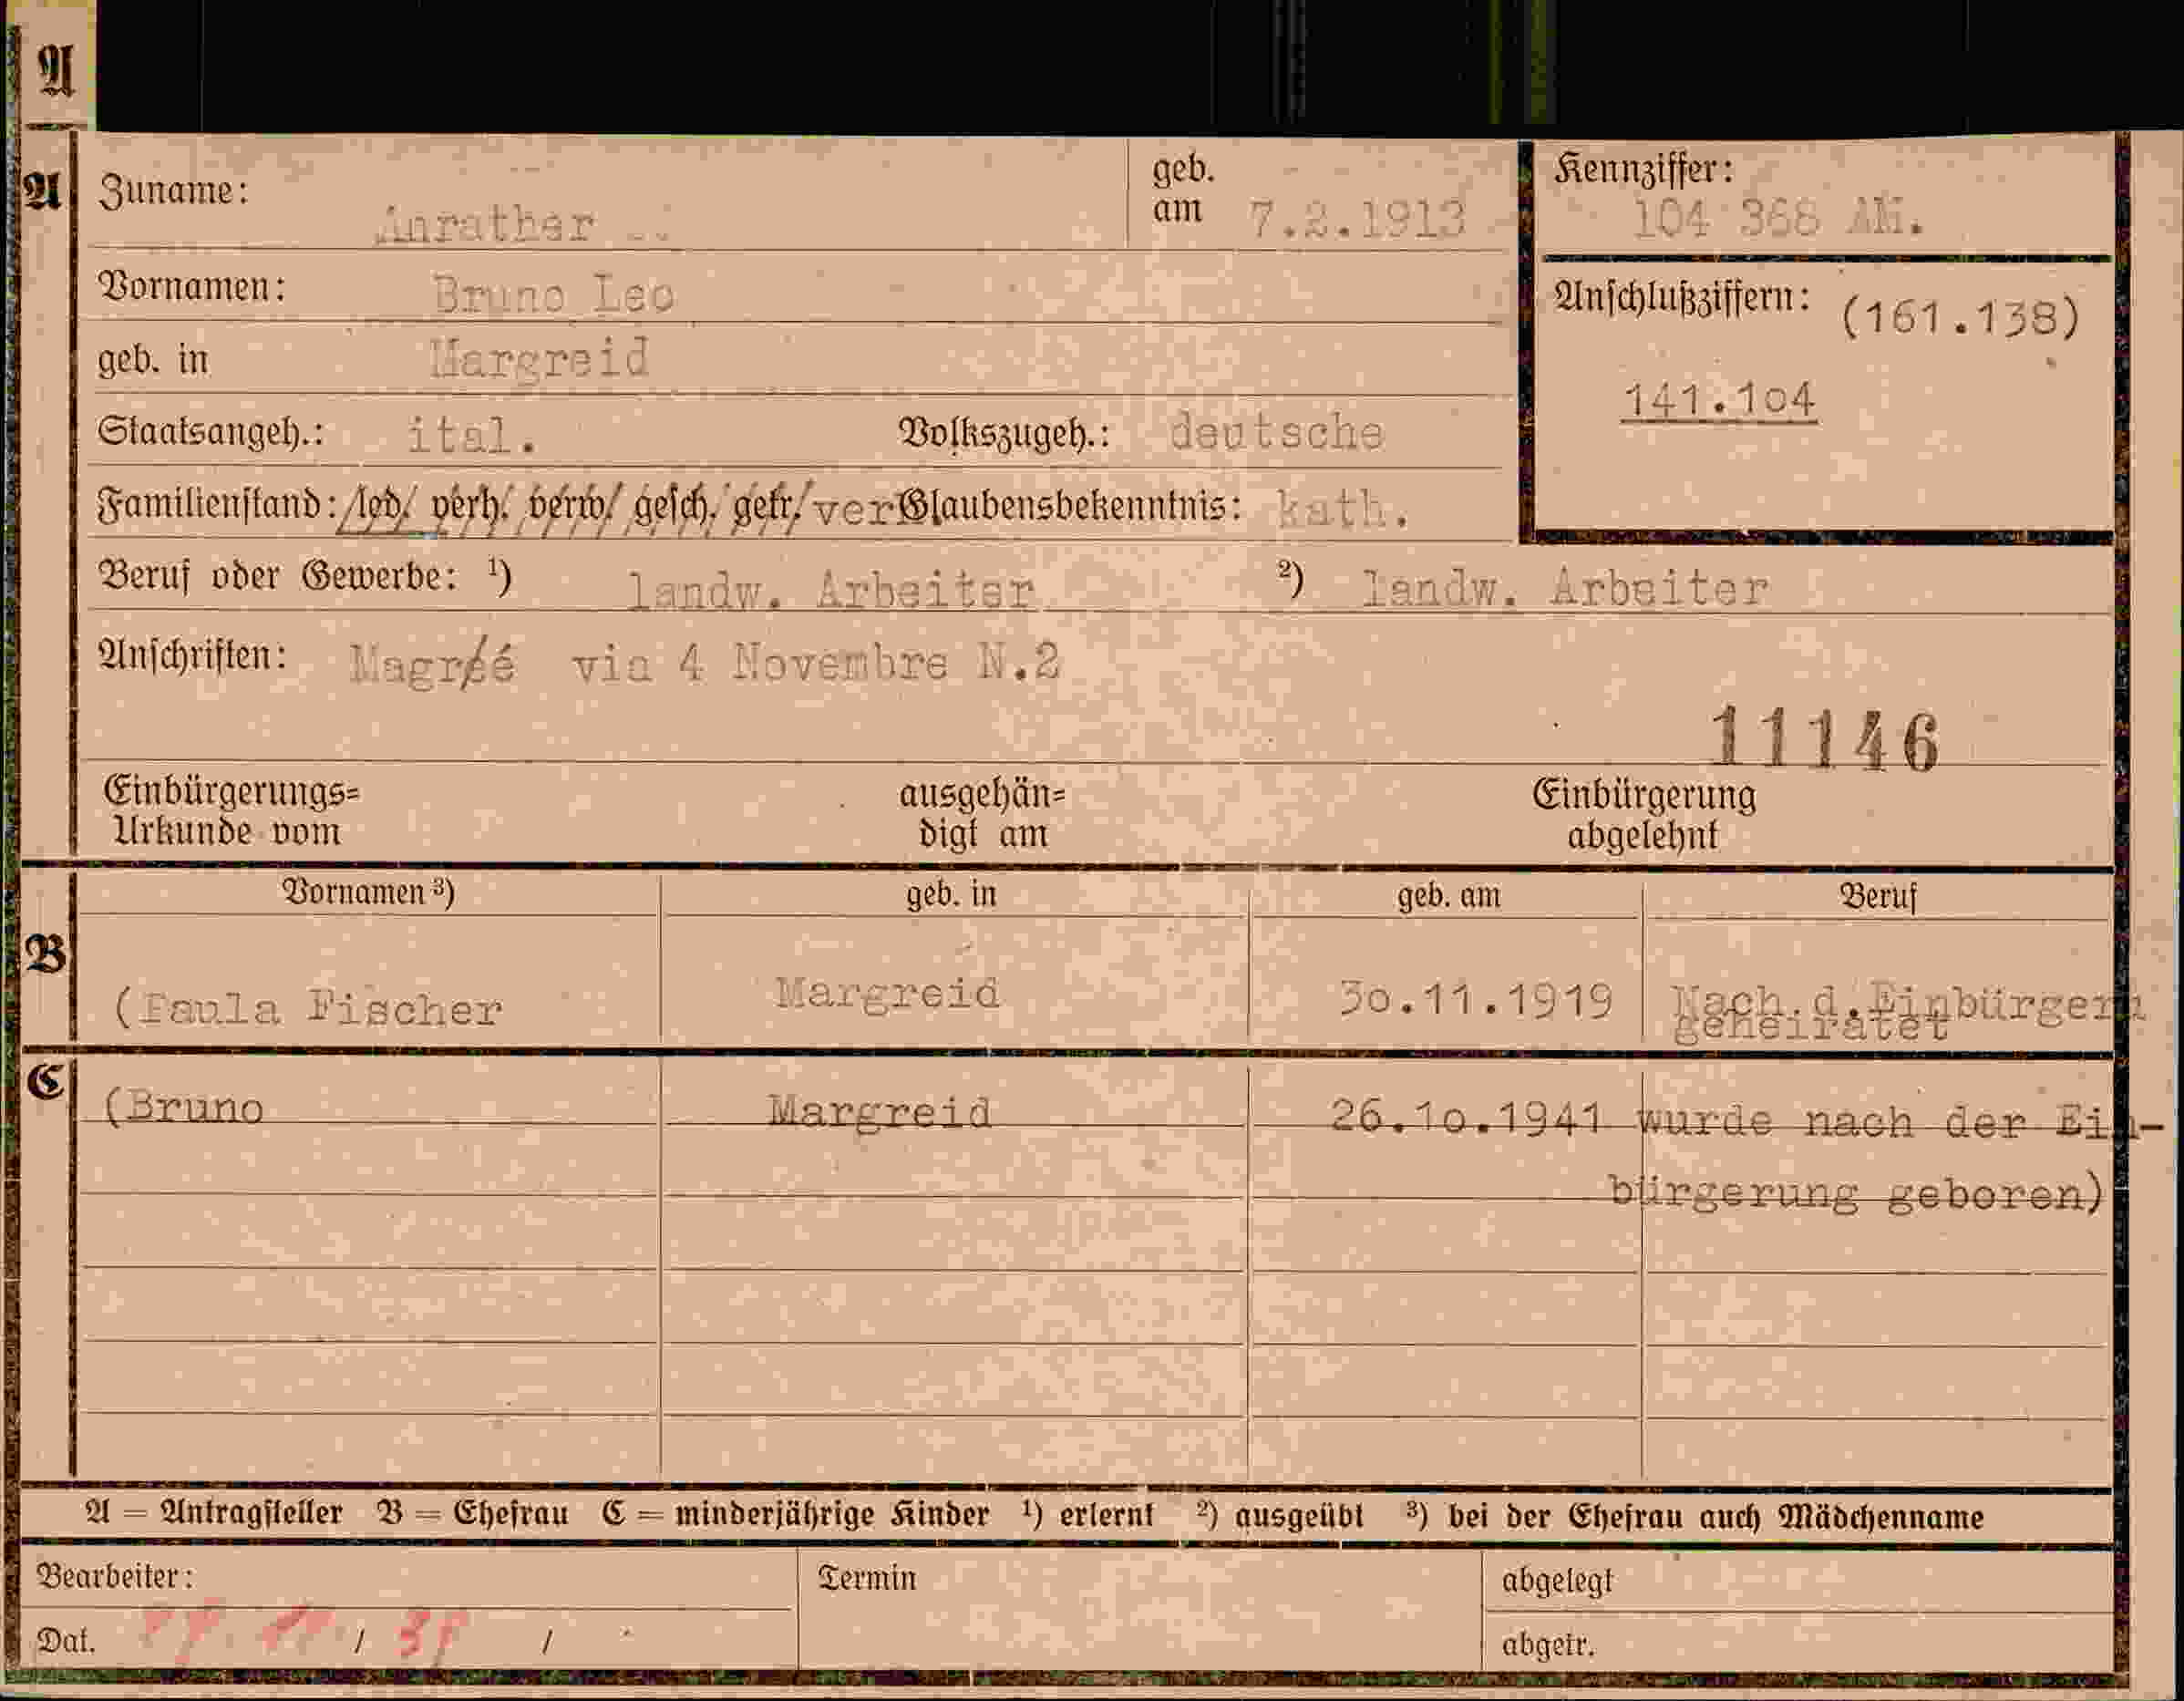 A
A Zuname: Anrather geb. am 7.2.1913 Kennziffer: 104 368 AM.
Vornamen: Bruno Leo Anschlußziffern: (161.138)
geb. in Margreid
141.104
Staatsangeh.: ital. Volkszugeh.: deutsche
Familienstand: led/ verh. verw/ gesch. getr/ ver Glaubensbekenntnis: kath.
Beruf oder Gewerbe: ¹) landw. Arbeiter ²) landw. Arbeiter
Anschriften: Magré via 4 Novembre N.2
11146
Einbürgerungs= ausgehän= Einbürgerung
Urkunde vom digt am abgelehnt
Vornamen ³) geb. in geb. am Beruf
B (Paula Fischer Margreid 30.11.1919 Nach.d.Einbürgern
geheiratet
C (Bruno Margreid 26.10.1941 wurde nach der Ein-
bürgerung geboren)
A = Antragsteller B = Ehefrau C = minderjährige Kinder ¹) erlernt ²) ausgeübt ³) bei der Ehefrau auch Mädchenname
Bearbeiter: Termin abgelegt
Dat. / / abgetr.